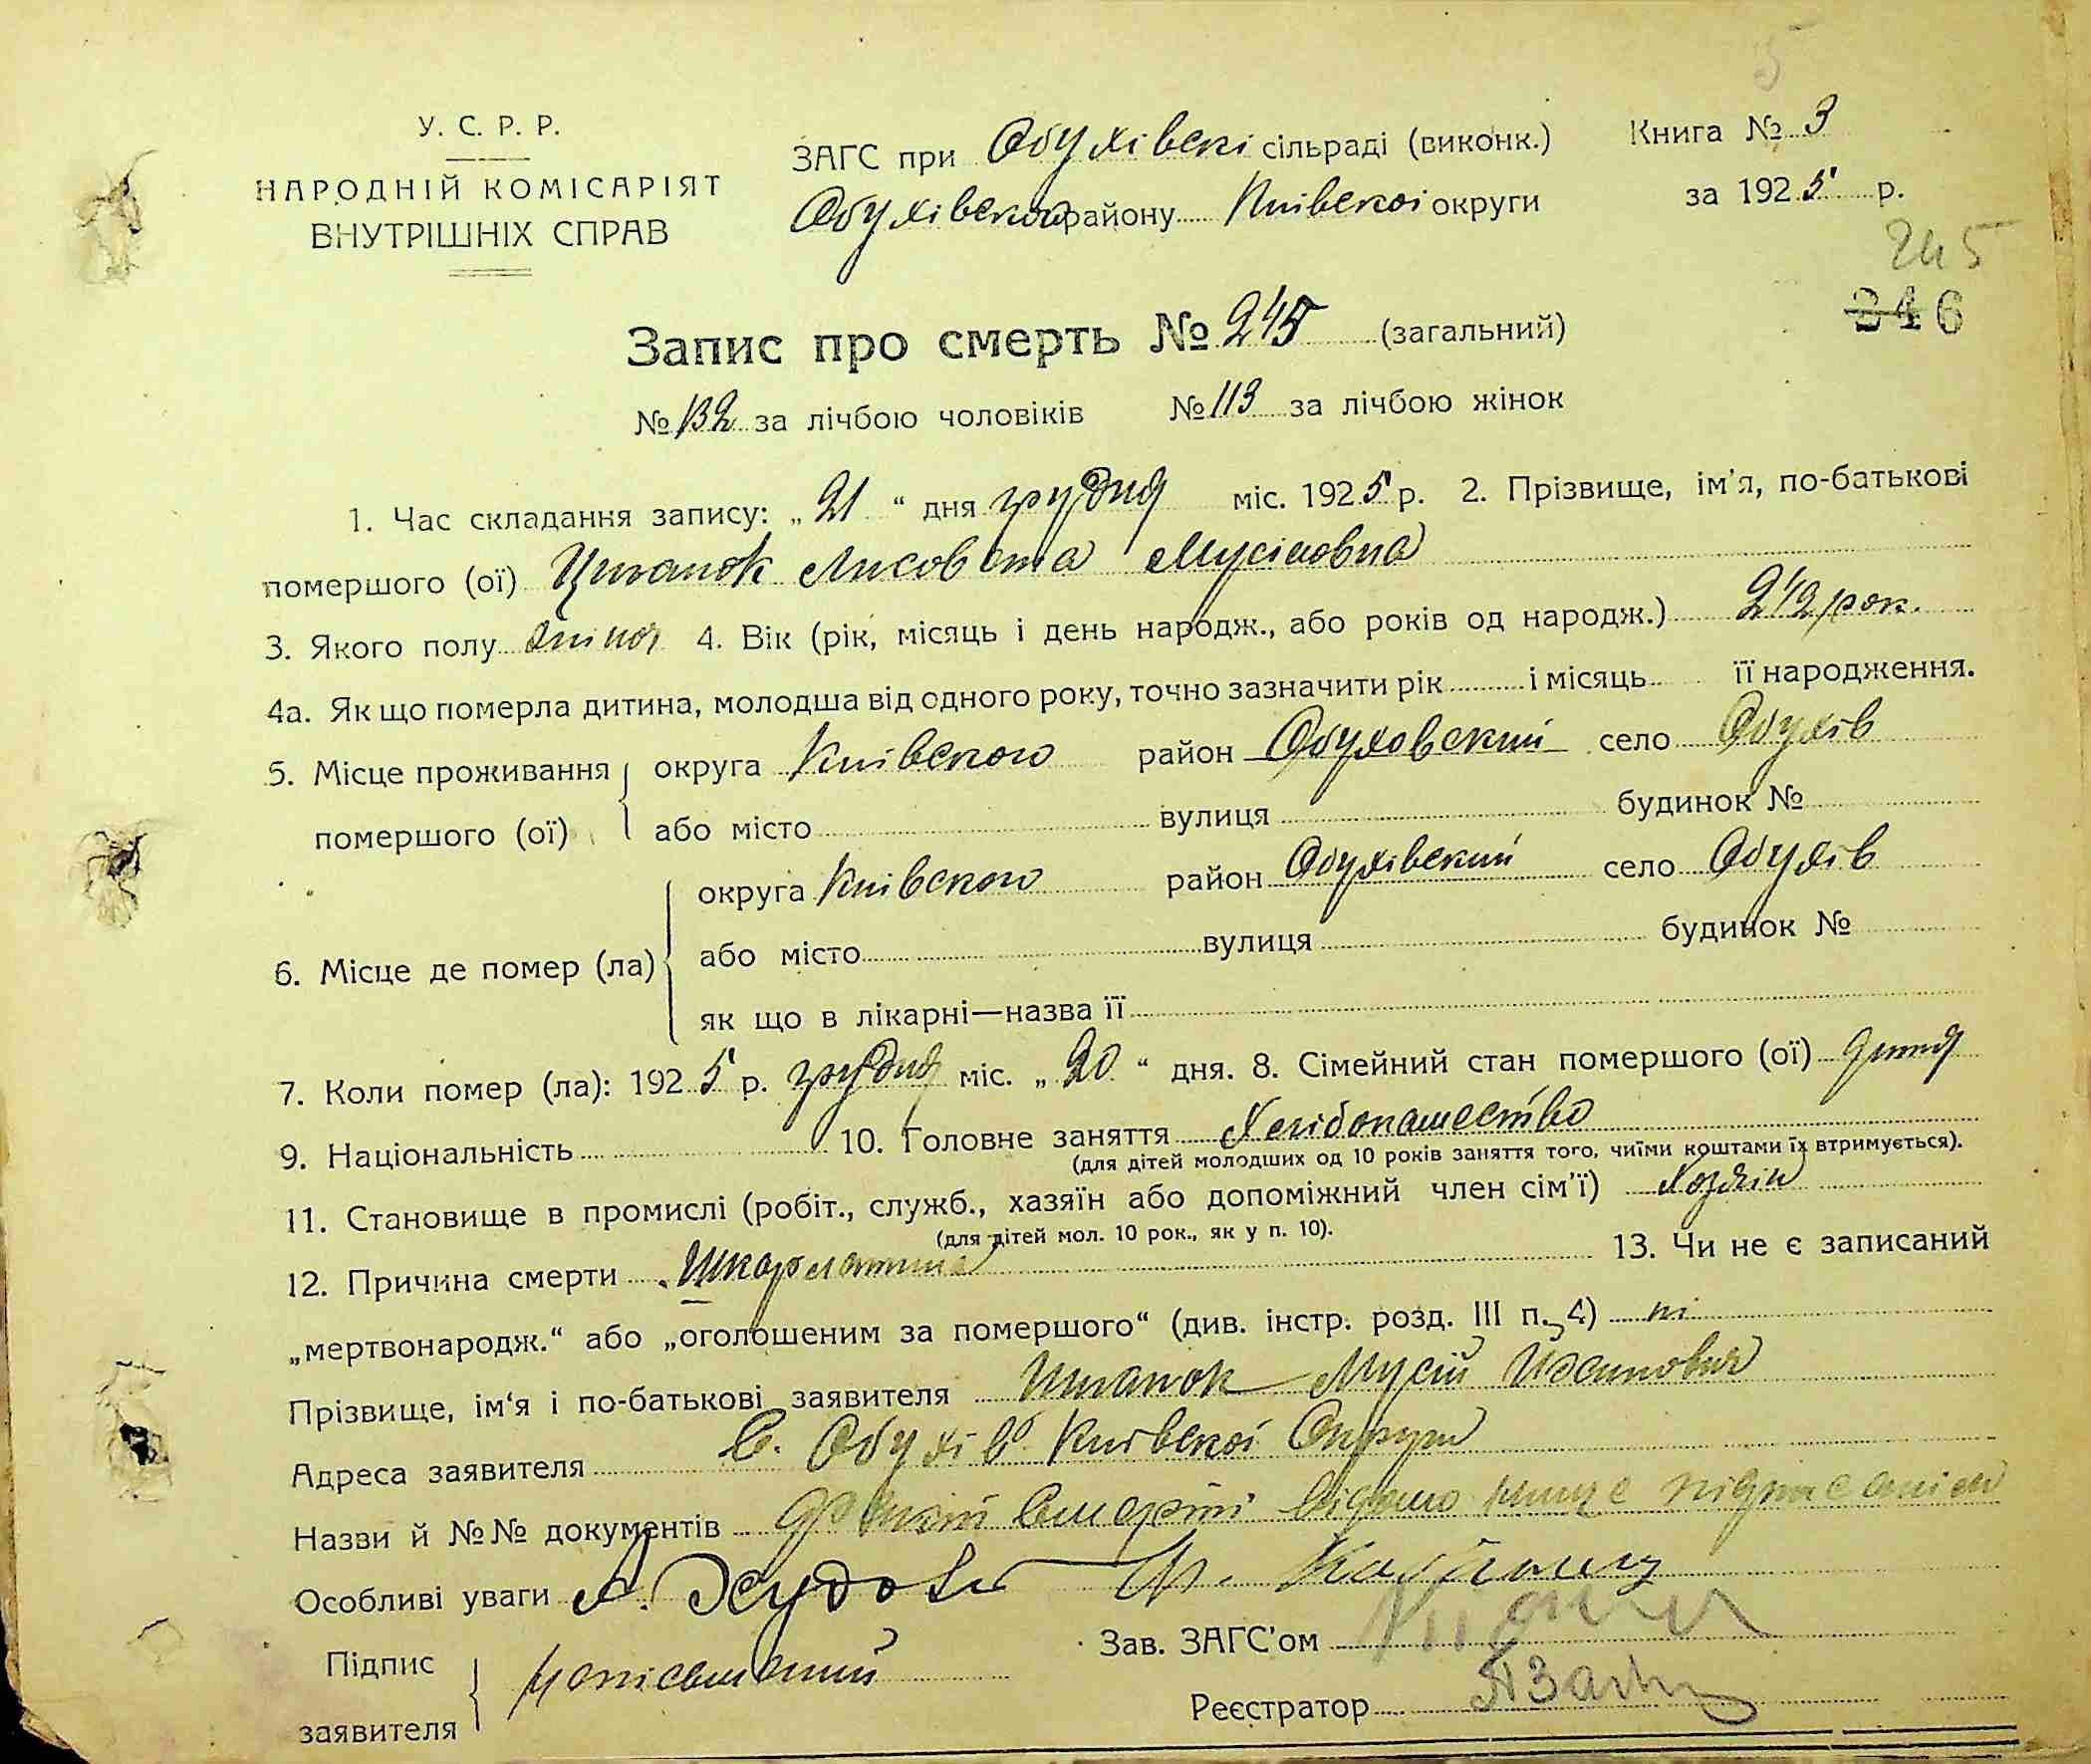 5
У. С. Р. Р.
НАРОДНІЙ КОМІСАРІЯТ
ВНУТРІШНІХ СПРАВ
ЗАГС при Обухівскі сільраді (виконк.)
Обухівского району Київскоі округи
Книга № 3
за 1925 р.
245
246
Запис про смерть № 245 (загальний)
№ 132 за лічбою чоловіків № 113 за лічбою жінок
1. Час складання запису: „21“ дня грудня міс. 1925 р. 2. Прізвище, ім'я, по-батькові
помершого (ої) Циганок Лисовета Мусіювна
3. Якого полу жіноч 4. Вік (рік, місяць і день народж., або років од народж.) 2 1/2 рок.
4а. Як що померла дитина, молодша від одного року, точно зазначити рік і місяць її народження.
5. Місце проживання округа Київского район Обуховский село Обухів
помершого (ої) або місто вулиця будинок №
округа Київского район Обухівский село Обухів
6. Місце де помер (ла) або місто вулиця будинок №
як що в лікарні—назва її
7. Коли помер (ла): 1925 р. грудня міс. „20“ дня. 8. Сімейний стан помершого (ої) дитя
9. Національність 10. Головне заняття Хлібопашество
(для дітей молодших од 10 років заняття того, чиїми коштами їх втримується).
11. Становище в промислі (робіт., служб., хазяїн або допоміжний член сім'ї) Хозяін
(для дітей мол. 10 рок., як у п. 10).
12. Причина смерти Шкарлатина 13. Чи не є записаний
„мертвонародж.“ або „оголошеним за помершого“ (див. інстр. розд. III п. 4) ні
Прізвище, ім'я і по-батькові заявителя Циганок Мусій Йосипович
Адреса заявителя С. Обухів Київскоі Округи
Назви й №№ документів смерті відомо нище підписаним
Особливі уваги
Підпис Зав. ЗАГС'ом
неписьменний
заявителя Реєстратор